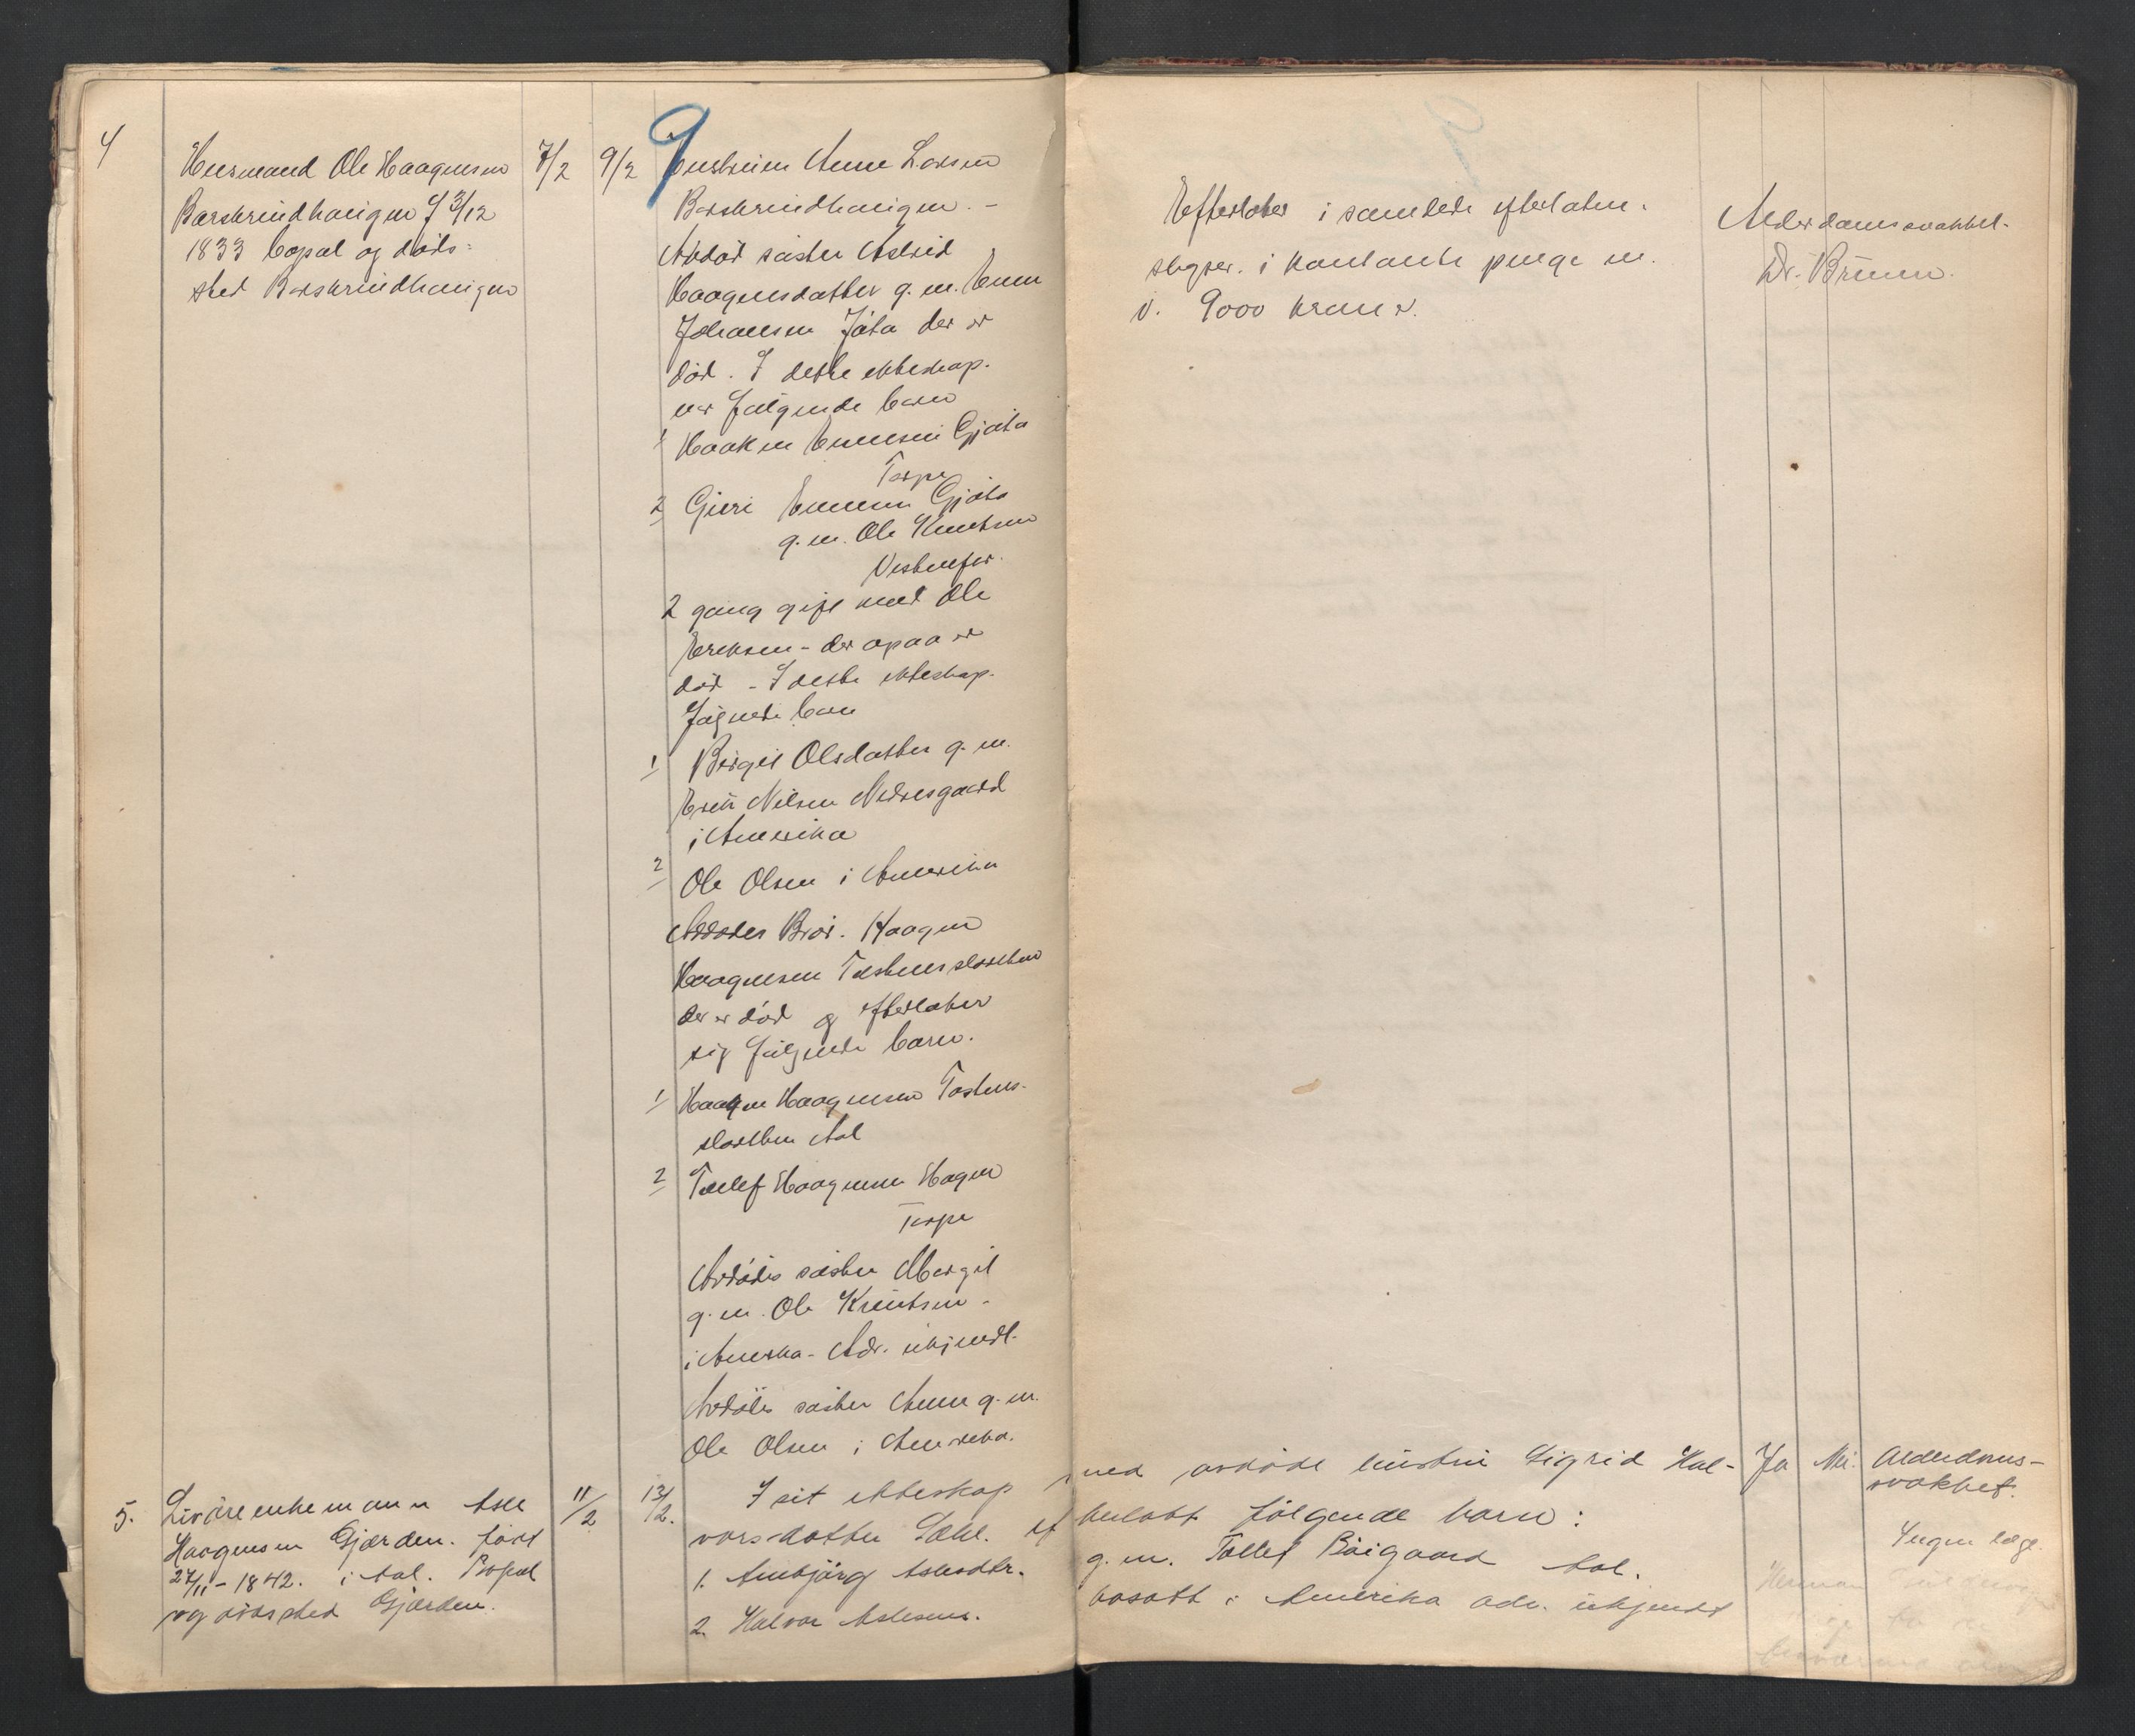 4
Husmand Ole Haagensen
Barskrindhaugen f 3/12
1833 bopæl og døds-
sted Barskrindhaugen
7/2
9/2
9
Enslinien Anne Larsen
Barskrindhaugen. -
Avdød søster Astrid
Haagensdatter g. m. Enen
Johansen Jøta der er
død. I dette ekteskap.
er følgende barn
1 Haaken Ennesen Gjøta
Torpe
2 Guri Ennesen Gjøta
g. m. Ole Knutsen
Vestenfor.
2 gang gift med Ole
Ereksen - der opaa er
død - I dette ekteskap.
følgende barn
1 Birgit Olsdatter g. m.
Erik Nilsen Nedresgaard
i Amerika
2 Ole Olsen i Amerika
Avdødes Bror. Haagen
Haagensen Tostensslaatten
der er død og efterlater
sig følgende barn.
1 Haagen Haagensen Tostens-
slaatten Aal
2 Tollef Haagensen Hagen
Torpe
Avdødes søster Margit
g. m. Ole Knutsen -
i Amerka - Adr. ukjendt.
Avdødes søster Anne g. m.
Ole Olsen i Amerika.
Efterlater i samlede efterladen-
skaper. i kontante penge m.
v. 9000 kroner.
Alderdomssvakhet.
Dr. Bruun.
5.
Livøreenkemann Asle
Haagensen Gjærden. født
27/11 - 1842. i Aal. Bopæl
og dødssted Gjærden.
11/2
13/2.
I sit ekteskap med avdøde hustru Sigrid Hal-
vorsdatter Dæhl. efterlatt følgende barn:
1. Ambjørg Aslesdtr. g. m. Tollef Bøigaard Aal.
2. Halvor Aslesen. bosatt i Amerika adr. ukjendt
Ja
Nei.
Alderdoms-
svakhet.
Ingen læge.